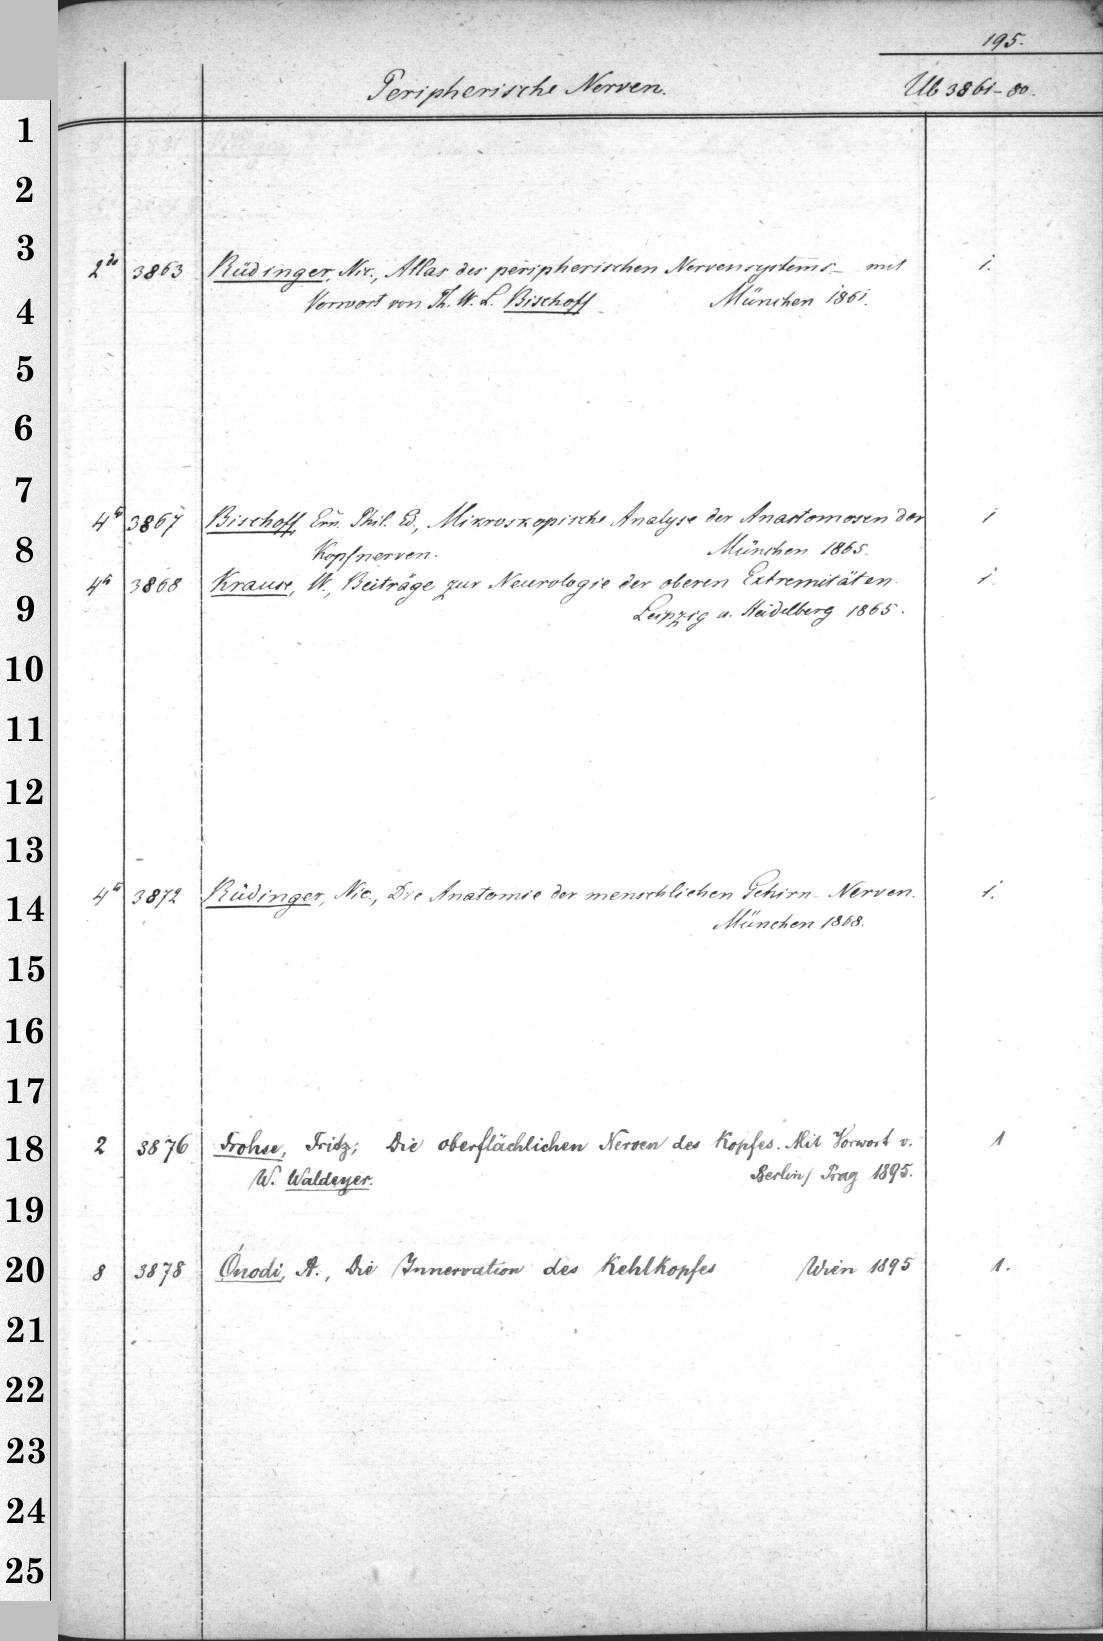 195.
Peripherische Nerven. Ub 3861-80.
2to 3863 Rüdinger, Nic., Atlas des peripherischen Nervensystems mit 1.
Vorwort von Th. W. L. Bischoff München 1861.
4to 3867 Bischoff, Ern. Phil. Ed, Mikroskopische Analyse der Anastomosen der 1
Kopfnerven. München 1865.
4to 3868 Krause, W., Beiträge zur Neurologie der oberen Extremitäten. 1.
Leipzig u. Heidelberg 1865.
4to 3872 Rüdinger, Nic., Die Anatomie der menschlichen Gehirn-Nerven. 1.
München 1868.
2 3876 Frohse, Fritz; Die oberflächlichen Nerven des Kopfes. Mit Vorwort v. 1
W. Waldeyer. Berlin/Prag 1895.
8 3878 Ónodi, A., Die Innervation des Kehlkopfes Wien 1895 1.
1
2
3
4
5
6
7
8
9
10
11
12
13
14
15
16
17
18
19
20
21
22
23
24
25